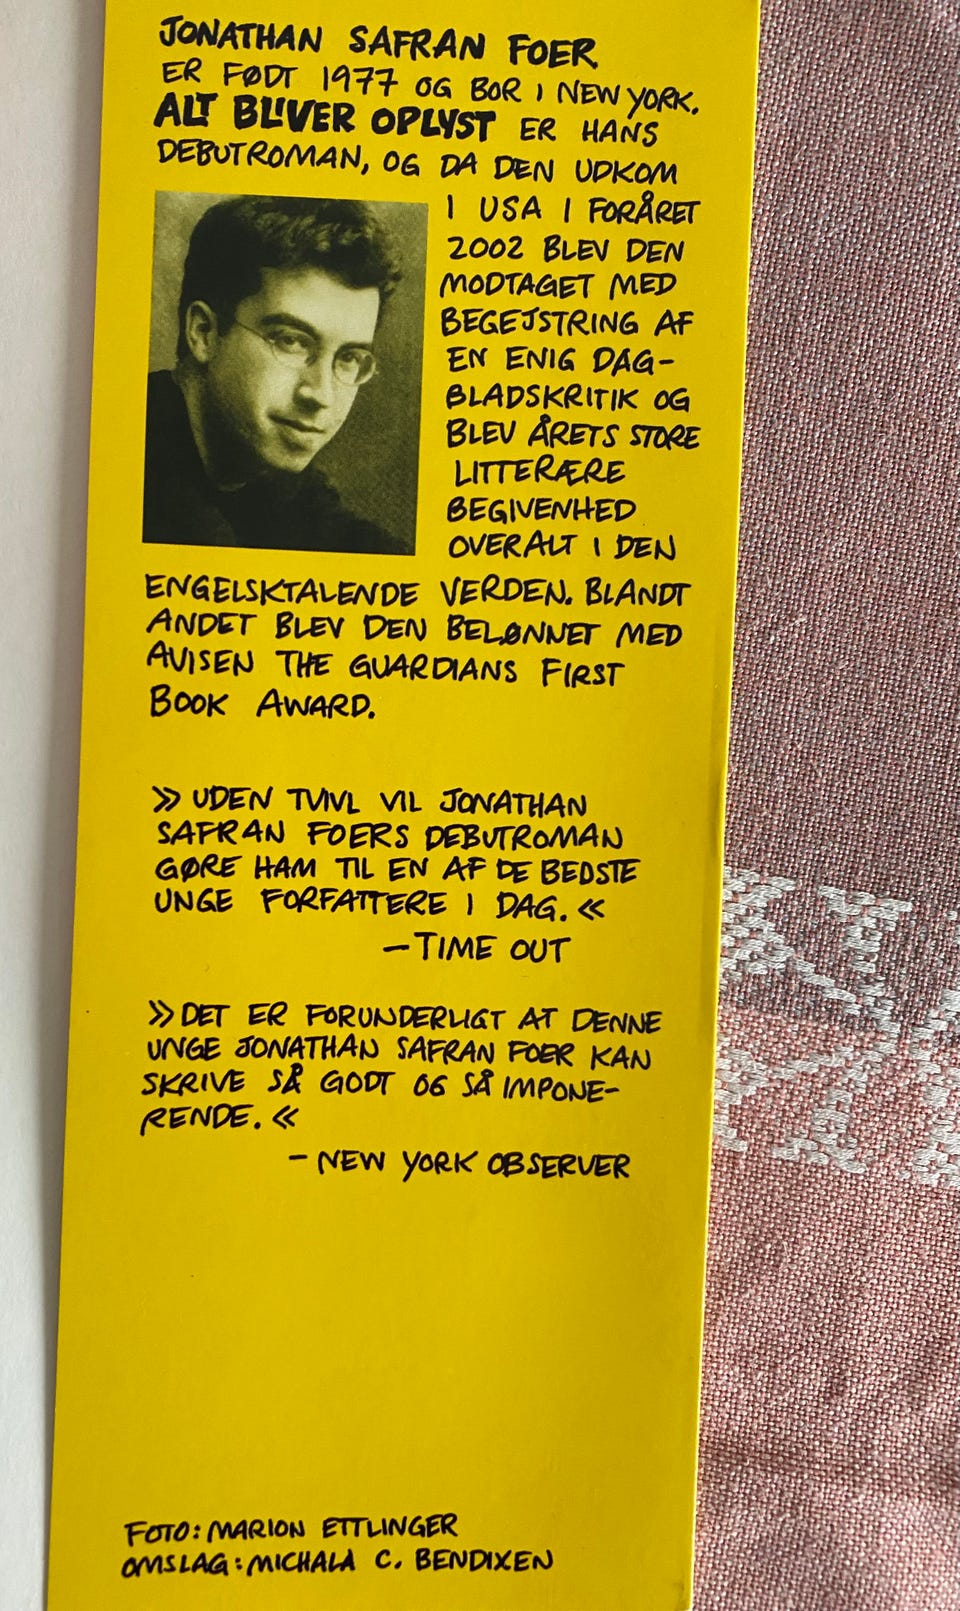 JONATHAN SAFRAN FOER
ER FØDT 1977 OG BOR I NEW YORK.
ALT BLIVER OPLYST ER HANS
DEBUTROMAN, OG DA DEN UDKOM
I USA I FORÅRET
2002 BLEV DEN
MODTAGET MED
BEGEJSTRING AF
EN ENIG DAG-
BLADSKRITIK OG
BLEV ÅRETS STORE
LITTERÆRE
BEGIVENHED
OVERALT I DEN
ENGELSKTALENDE VERDEN. BLANDT
ANDET BLEV DEN BELØNNET MED
AVISEN THE GUARDIANS FIRST
BOOK AWARD.
»UDEN TVIVL VIL JONATHAN
SAFRAN FOERS DEBUTROMAN
GØRE HAM TIL EN AF DE BEDSTE
UNGE FORFATTERE I DAG.«
–TIME OUT
»DET ER FORUNDERLIGT AT DENNE
UNGE JONATHAN SAFRAN FOER KAN
SKRIVE SÅ GODT OG SÅ IMPONE-
RENDE.«
– NEW YORK OBSERVER
FOTO: MARION ETTLINGER
OMSLAG: MICHALA C. BENDIXEN